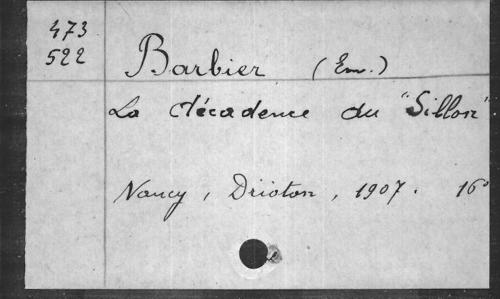 473
522
Barbier (Em.)
La décadence du "Sillon"
Nancy, Drioton, 1907. 16°